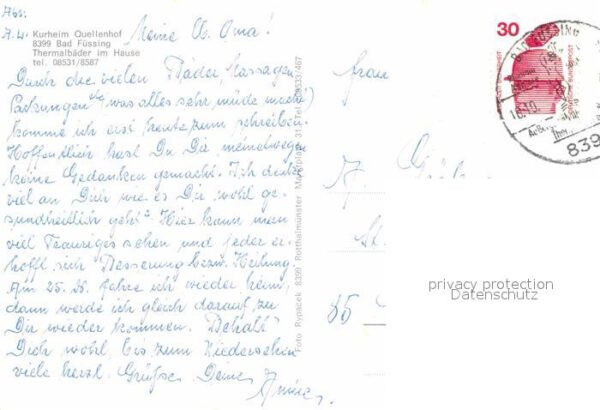 Abs.
Kurheim Quellenhof
8399 Bad Füssing
Thermalbäder im Hause
tel. 08531/8587
Meine lb. Oma!
Durch die vielen Bäder, Massagen,
Packungen etc. was alles sehr müde macht
komme ich erst heute zum schreiben.
Hoffentlich hast Du Dir meinetwegen
keine Gedanken gemacht. Ich denke
viel an Dich wie es Dir wohl ge-
sundheitlich geht? Hier kann man
viel Trauriges sehen und jeder er-
hofft sich Besserung bzw. Heilung.
Am 25. fahre ich wieder heim,
dann werde ich gleich darauf zu
Dir wieder kommen. Behalt
Dich wohl bis zum Wiedersehen
viele herzl. Grüße Deine
Foto Rypacek 8399 Rotthalmünster Marktplatz 31 Tel. 08533/467
Frau
85
30
DEUTSCHE BUNDESPOST
BAD FÜSSING
839
privacy protection
Datenschutz